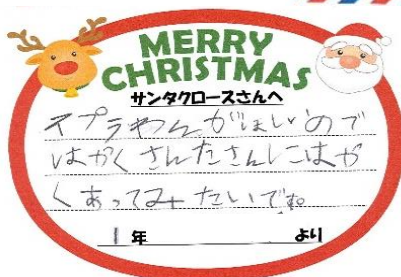 MERRY
CHRISTMAS
サンタクロースさんへ
スプラわんがほしいので
はやくさんたさんにはや
くあってみたいです。
1年 より